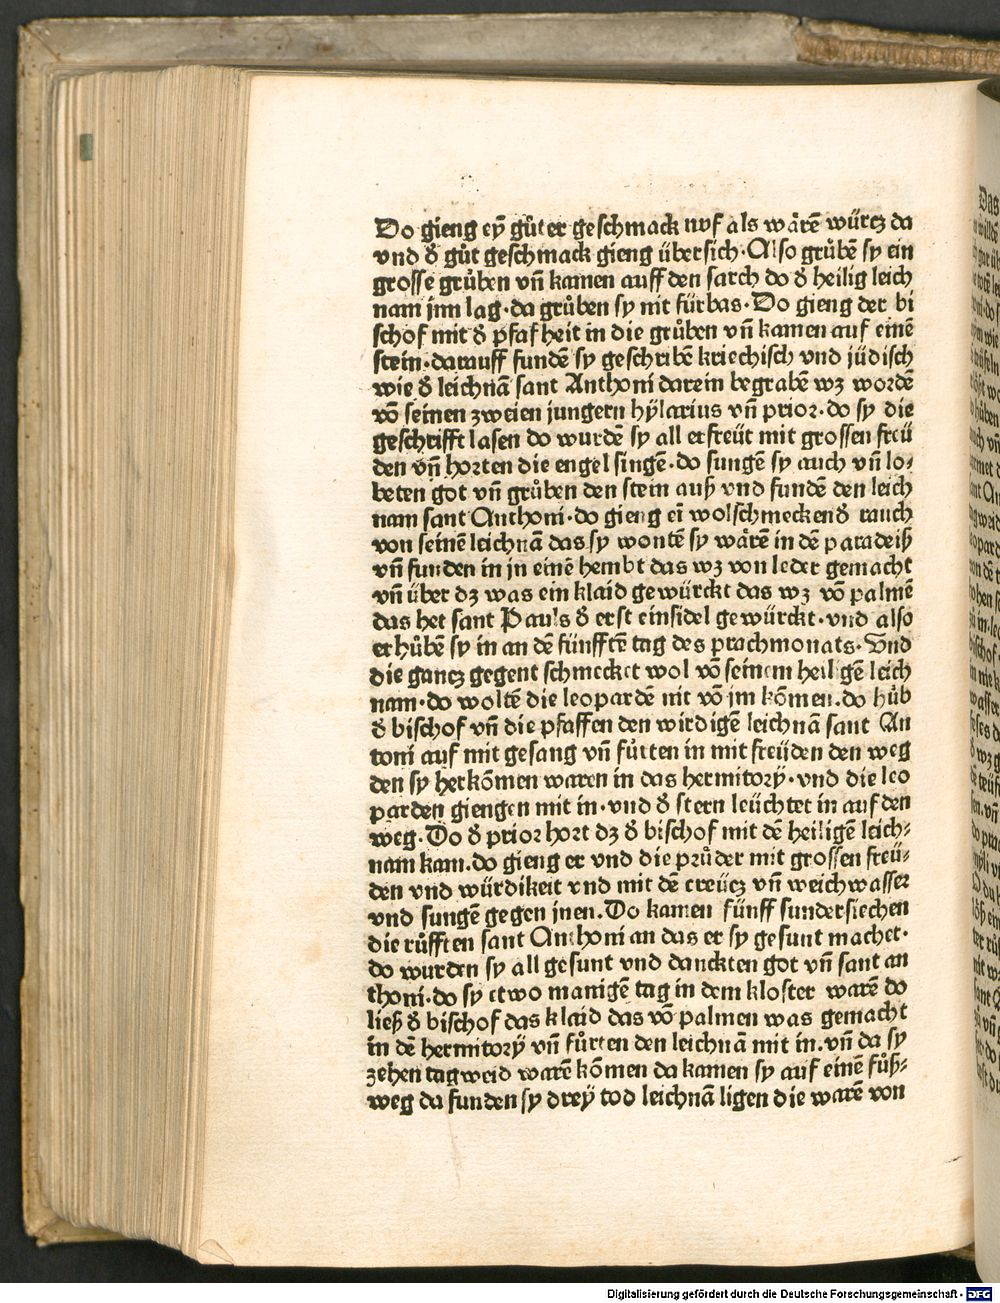 Do gieng eÿ gůter geschmack auf als wårē würcz da
vnd ď gůt geschmack gieng übersich·Also grůbē sy ein
grosse grůben vñ kamen auff den sarch do ď heilig leich
nam jnn lag·da grůben sy nit fürbas·Do gieng der bi
schof mit ď pfafheit in die grůben vñ kamen auf einē
stein·darauff fundē sy geschribē kriechisch vnd jüdisch
wie ď leichnā sant Anthoni darein begrabē wz wordē
vō seinen zweien jungern hÿlarius vñ prior·do sy die
geschrifft lasen do wurdē sy all erfreüt mit grossen freü
den vñ horten die engel singē·do sungē sy auch vñ lo⸗
beten got vñ grůben den stein auß vnd fundē den leich
nam sant Anthoni·do gieng eī wolschmeckenď rauch
von seinē leichnā das sy wontē sy wårē in dē paradeiß
vñ funden in jn einē hembt das wz von leder gemacht
vñ über dz was ein klaid gewürckt das wz vō palmē
das het sant Pauls ď erst einsidel gewürckt·vnd also
erhůbē sy in an dē fünfftē tag des prachmonats·Vnd
die gancz gegent schmecket wol vō seinem heiligē leich
nam·do woltē die lepardē nit vō jm kōmen·do hůb
ď bischof vñ die pfaffen den wirdigē leichnā sant An
toni auf mit gesang vñ fůrten in mit freüden den weg
den sy herkōmen waren in das hermitorÿ·vnd die leo
parden giengen mit in·vnd ď stern leüchtet in auf den
weg·Do ď prior hort dz ď bischof mit dē heiligē leich⸗
nam kam·do gieng er vnd die průder mit grossen freü⸗
den vnd würdikeit vnd mit dē creücz vñ weichwasser
vnd sungē gegen jnen·Do kamen fünff sundersiechen
die růfften sant Anthoni an das er sy gesunt machet·
do wurden sy all gesunt vnd danckten got vñ sant an
thoni·do sy etwo manigē tag in dem kloster warē do
ließ ď bischof das klaid das vō palmen was gemacht
in dē hermitorÿ vñ fůrten den leichnā mit in·vñ da sy
zehen tagweid warē kōmen da kamen sy auf einē fůß⸗
weg da funden sy dreÿ tod leichnā ligen die warē von
Digitalisierung gefördert durch die Deutsche Forschungsgemeinschaft · DFG